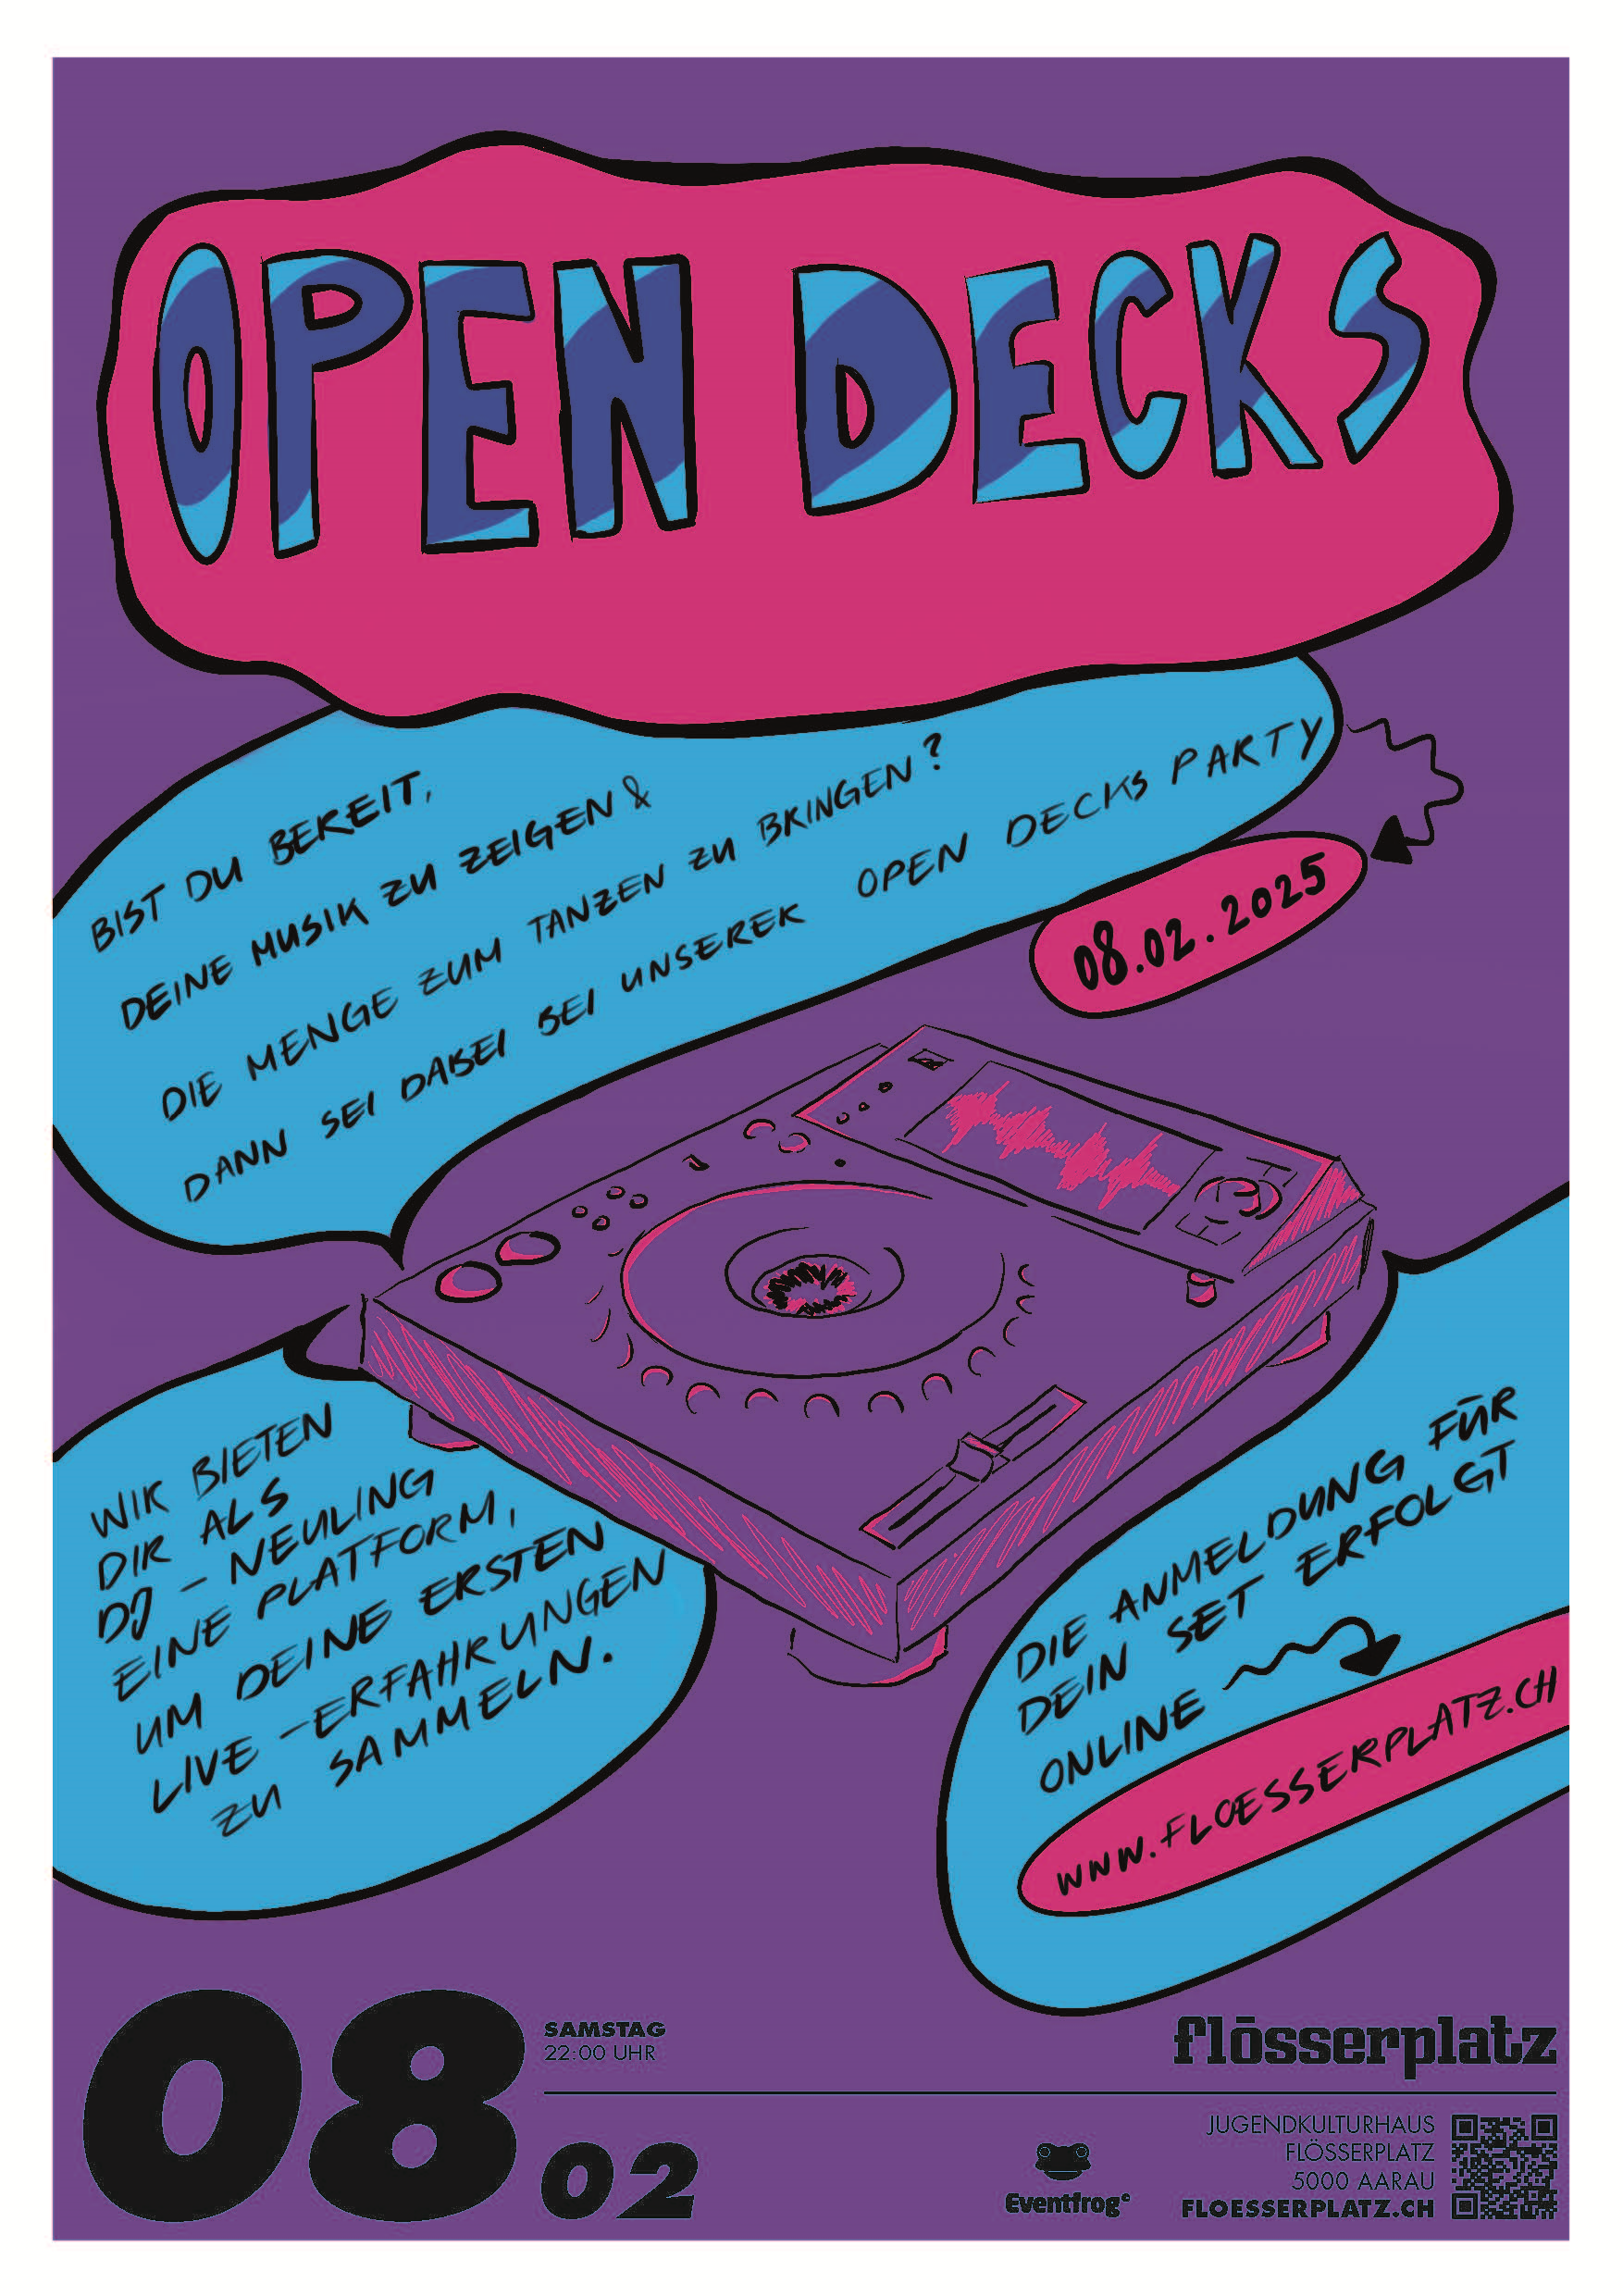 OPEN DECKS
BIST DU BEREIT,
DEINE MUSIK ZU ZEIGEN &
DIE MENGE ZUM TANZEN ZU BRINGEN?
DANN SEI DABEI BEI UNSERER OPEN DECKS PARTY
08.02.2025
WIR BIETEN
DIR ALS
DJ - NEULING
EINE PLATFORM,
UM DEINE ERSTEN
LIVE - ERFAHRUNGEN
ZU SAMMELN.
DIE ANMELDUNG FÜR
DEIN SET ERFOLGT
ONLINE
WWW.FLOESSERPLATZ.CH
08 02
SAMSTAG
22:00 UHR
flösserplatz
Eventfrog®
JUGENDKULTURHAUS
FLÖSSERPLATZ
5000 AARAU
FLOESSERPLATZ.CH